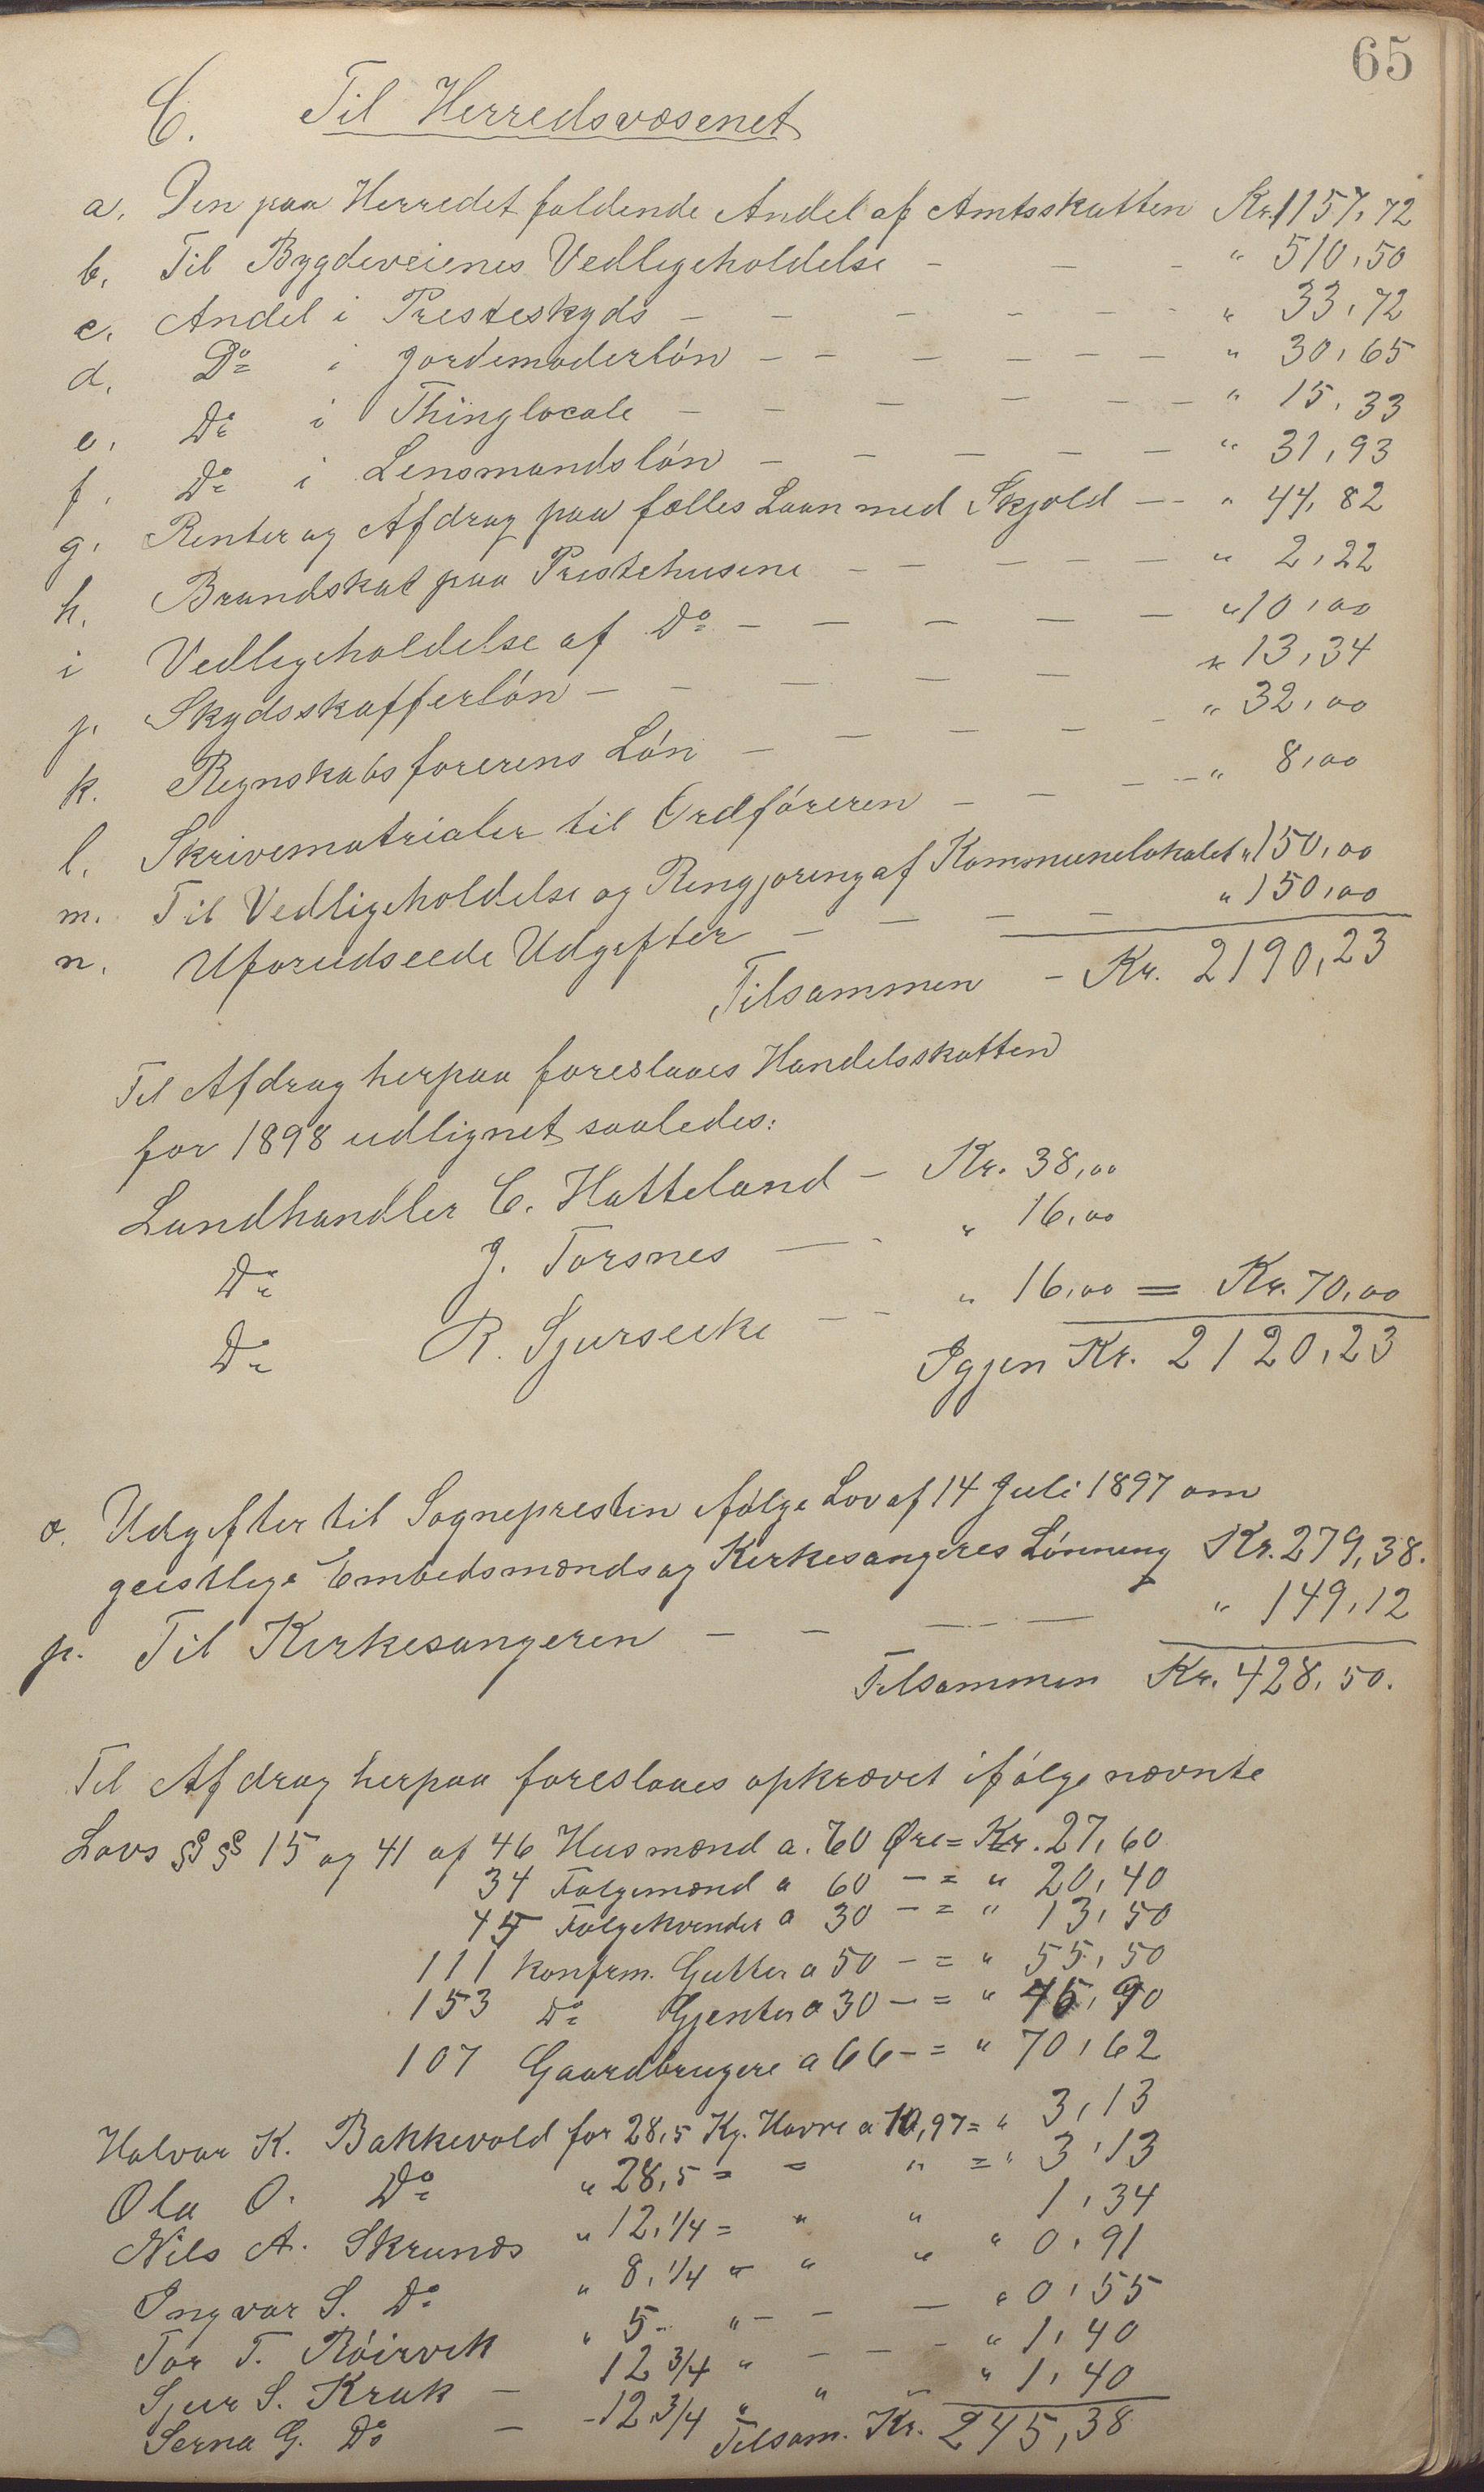 65
C. Til Herredsvæsenet
a. Den paa Herredet faldende Andel af Amtsskatten Kr. 1157,72
b. Til Bygdeveienes Vedligeholdelse - - - " 510,50
c. Andel i Presteskyds - - - - - - " 33,72
d. Do i Jordemoderløn - - - - - - " 30,65
e. Do i Thinglocale - - - - - - " 15,33
f. Do i Lensmandsløn - - - - - " 31,93
g. Renter og Afdrag paa fælles Laan med Skjold - - " 44,82
h. Brandskat paa Prestehusene - - - - - " 2,22
i Vedligeholdelse af Do - - - - - " 10,00
j. Skydsskafferløn - - - - - " 13,34
k. Regnskabsførerens Løn - - - - - " 32,00
l. Skrivematrialer til Ordføreren - - - - " 8,00
m. Til Vedligeholdelse og Rengjøring af Kommunelokalet " 150,00
n. Uforudseede Udgifter - - - - " 150,00
Tilsammen - Kr. 2190,23
Til Afdrag herpaa foreslaaes Handelsskatten
for 1898 udlignet saaledes:
Landhandler C. Hatteland - Kr. 38,00
Do J. Torsnes - - " 16,00
Do R. Sjurseike - - " 16,00 = Kr. 70,00
Igjen Kr. 2120,23
o. Udgifter til Sognepresten ifølge Lov af 14 Juli 1897 om
geistlige Embedsmænds og Kirkesangeres Lønning Kr. 279,38.
p. Til Kirkesangeren - - - - - " 149,12
Tilsammen Kr. 428,50.
Til Afdrag herpaa foreslaaes opkrævet ifølge nævnte
Lovs §§ 15 og 41 af 46 Husmænd a. 60 Øre = Kr. 27,60
34 Følgemænd a 60 - = " 20,40
45 Følgekvinder a 30 - = " 13,50
111 konfirm. Gutter a 50 - = " 55,50
153 Do Gjenter a 30 - = " 45,90
107 Gaardbrugere a 66 - = " 70,62
Halvar K. Bakkevold for 28,5 Kg. Havre a 10,97 = " 3,13
Ola O. Do " 28,5 = = " = " 3,13
Nils A. Skrunes " 12,1/4 = " " 1,34
Ingvar S. Do " 8,1/4 " " " " 0,91
Tor T. Røirvik " 5 - " - - - " 0,55
Sjur S. Krak - 12 3/4 " - - - " 1,40
Serna G. Do - - 12 3/4 " " " " 1,40
Tilsam. Kr. 245,38